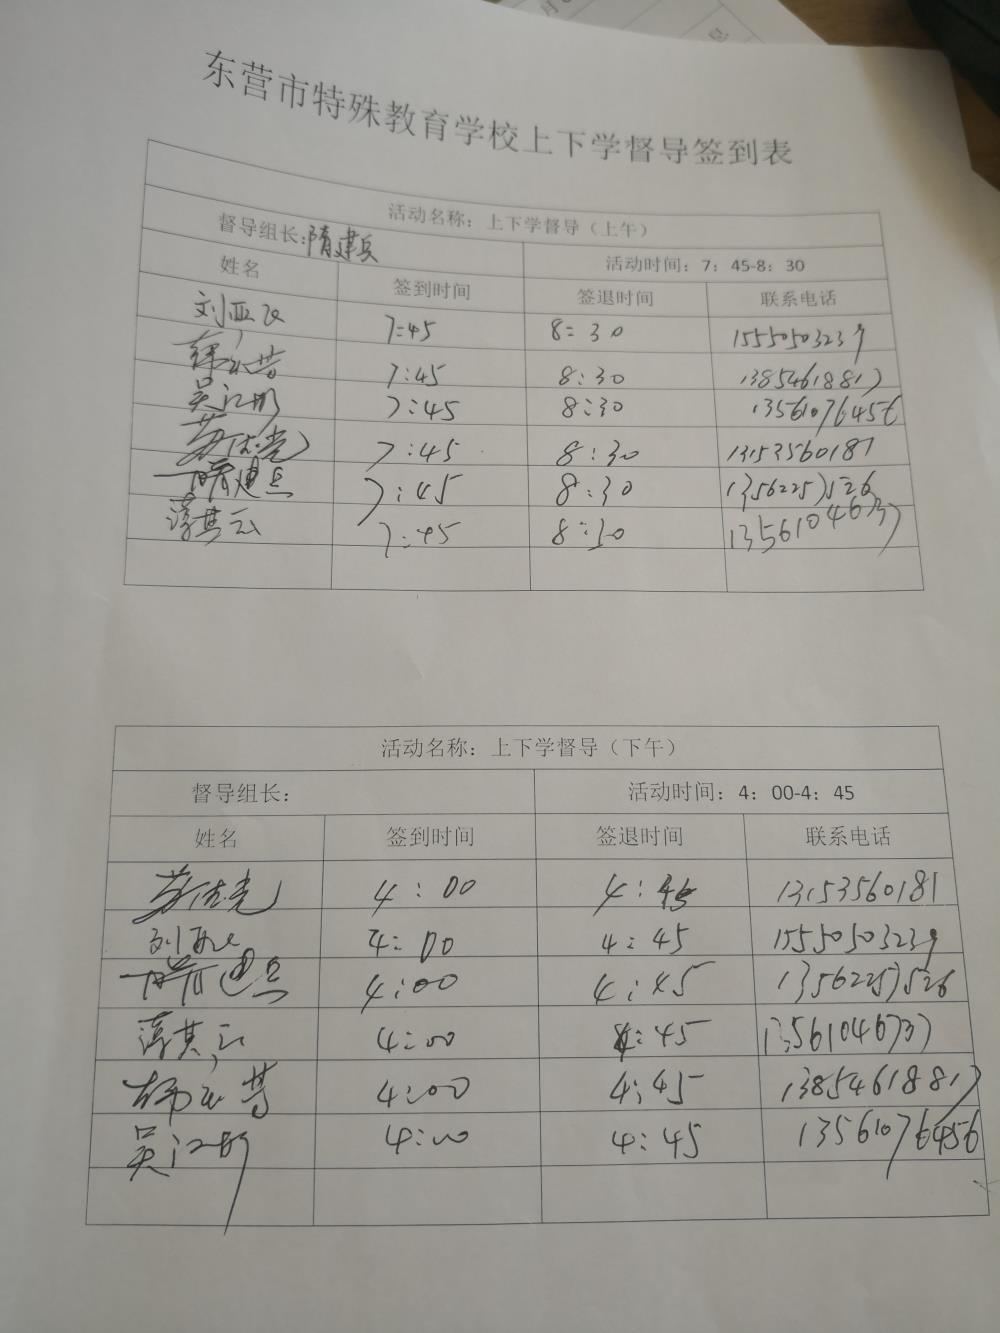 东营市特殊教育学校上下学督导签到表
活动名称：上下学督导（上午）
督导组长：隋建兵 活动时间：7：45-8：30
姓名 签到时间 签退时间 联系电话
刘亚 7:45 8:30 15550503239
7:45 8:30 13854618817
吴江彬 7:45 8:30 13561076456
7:45 8:30 13153560181
隋建兵 7:45 8:30 13562257526
其云 7:45 8:30 13561046737
活动名称：上下学督导（下午）
督导组长： 活动时间：4：00-4：45
姓名 签到时间 签退时间 联系电话
4:00 4:45 13153560181
刘亚 4:00 4:45 15550503239
隋建兵 4:00 4:45 13562257526
其云 4:00 4:45 13561046737
4:00 4:45 13854618817
吴江彬 4:00 4:45 13561076456